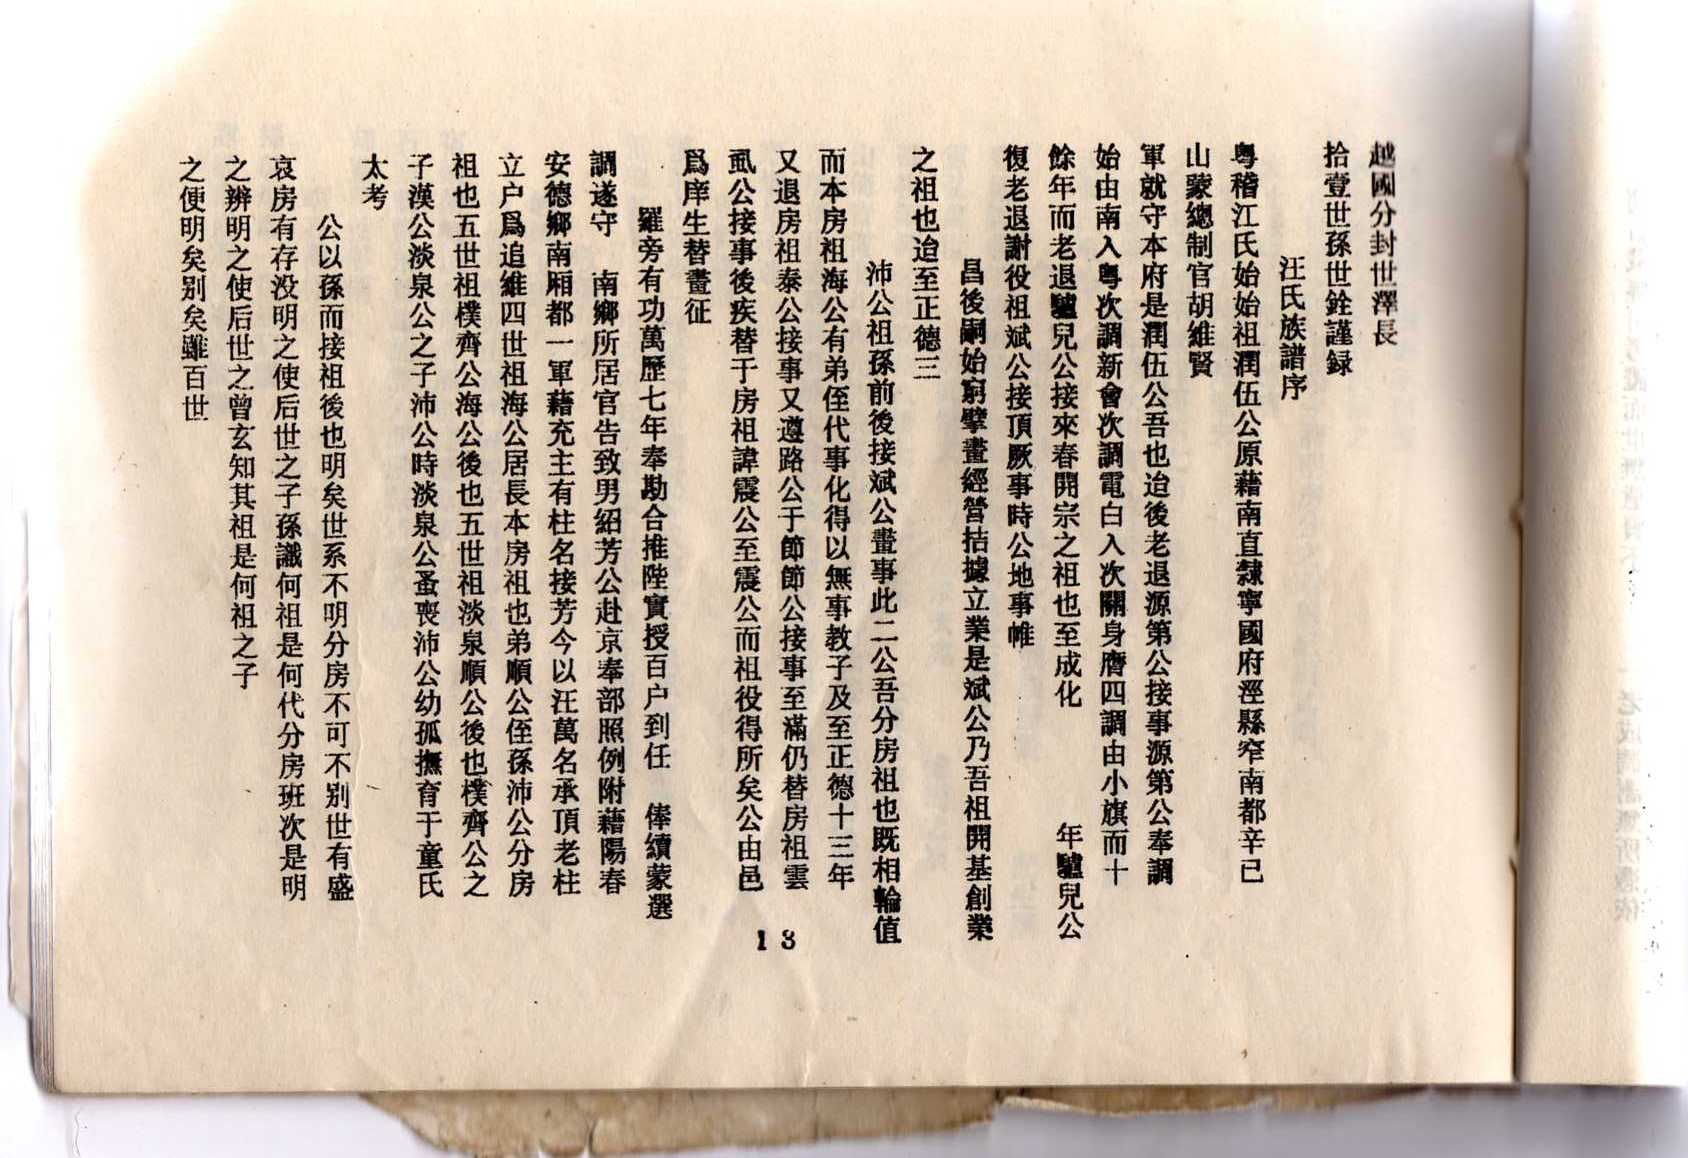 越國分封世澤長
拾壹世孫世銓謹録
汪氏族譜序
粤稽江氏始始祖潤伍公原藉南直隸寧國府涇縣窄南都辛已
山蒙總制官胡維賢
軍就守本府是潤伍公吾也迨後老退源第公接事源第公奉調
始由南入粤次調新會次調電白入次關身膺四調由小旗而十
餘年而老退驢兒公接來春開宗之祖也至成化　　　年驢兒公
復老退謝役祖斌公接頂厥事時公地事帷
昌後嗣始窮擘畫經營拮據立業是斌公乃吾祖開基創業
之祖也迨至正德三
沛公祖孫前後接斌公畫事此二公吾分房祖也既相輪值
而本房祖海公有弟侄代事化得以無事教子及至正德十三年
又退房祖泰公接事又遵路公于節節公接事至滿仍替房祖雲
虱公接事後疾替于房祖諱震公至震公而祖役得所矣公由邑
爲庠生替畫征
羅旁有功萬歷七年奉勘合推陞實授百户到任　俸續蒙選
調遂守　南鄉所居官告致男紹芳公赴京奉部照例附藉陽春
安德鄉南厢都一軍藉充主有柱名接芳今以汪萬名承頂老柱
立户爲追維四世祖海公居長本房祖也弟順公侄孫沛公分房
祖也五世祖樸齊公海公後也五世祖淡泉順公後也樸齊公之
子漢公淡泉公之子沛公時淡泉公蚤喪沛公幼孤撫育于童氏
太考
公以孫而接祖後也明矣世系不明分房不可不别世有盛
哀房有存没明之使后世之子孫識何祖是何代分房班次是明
之辨明之使后世之曾玄知其祖是何祖之子
之便明矣别矣雖百世
13